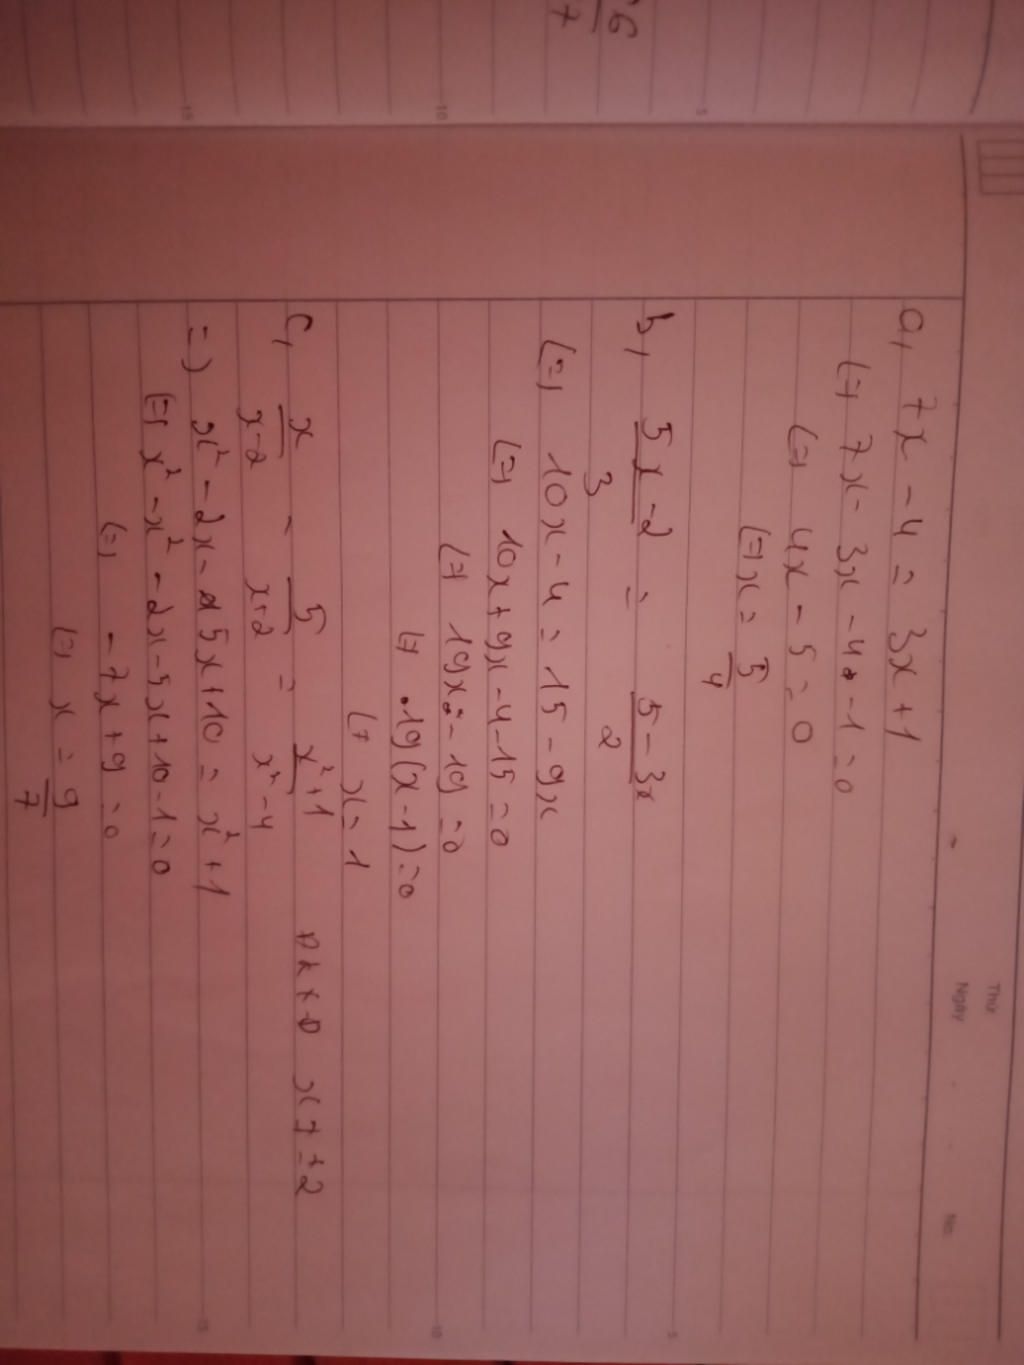 Thứ
Ngày
No.
a, 7x - 4 = 3x + 1
(=) 7x - 3x - 4 - 1 = 0
(=) 4x - 5 = 0
(=) x = 5/4
b, (5x - 2)/3 = (5 - 3x)/2
(=) 10x - 4 = 15 - 9x
(=) 10x + 9x - 4 - 15 = 0
(=) 19x - 19 = 0
(=) 19(x - 1) = 0
(=) x = 1
c, x/(x-2) - 5/(x+2) = (x² + 1)/(x² - 4) ĐKXĐ x ≠ ±2
=) x² - 2x - 5x + 10 = x² + 1
(=) x² - x² - 2x - 5x + 10 - 1 = 0
(=) - 7x + 9 = 0
(=) x = 9/7
5
10
15
5
10
15